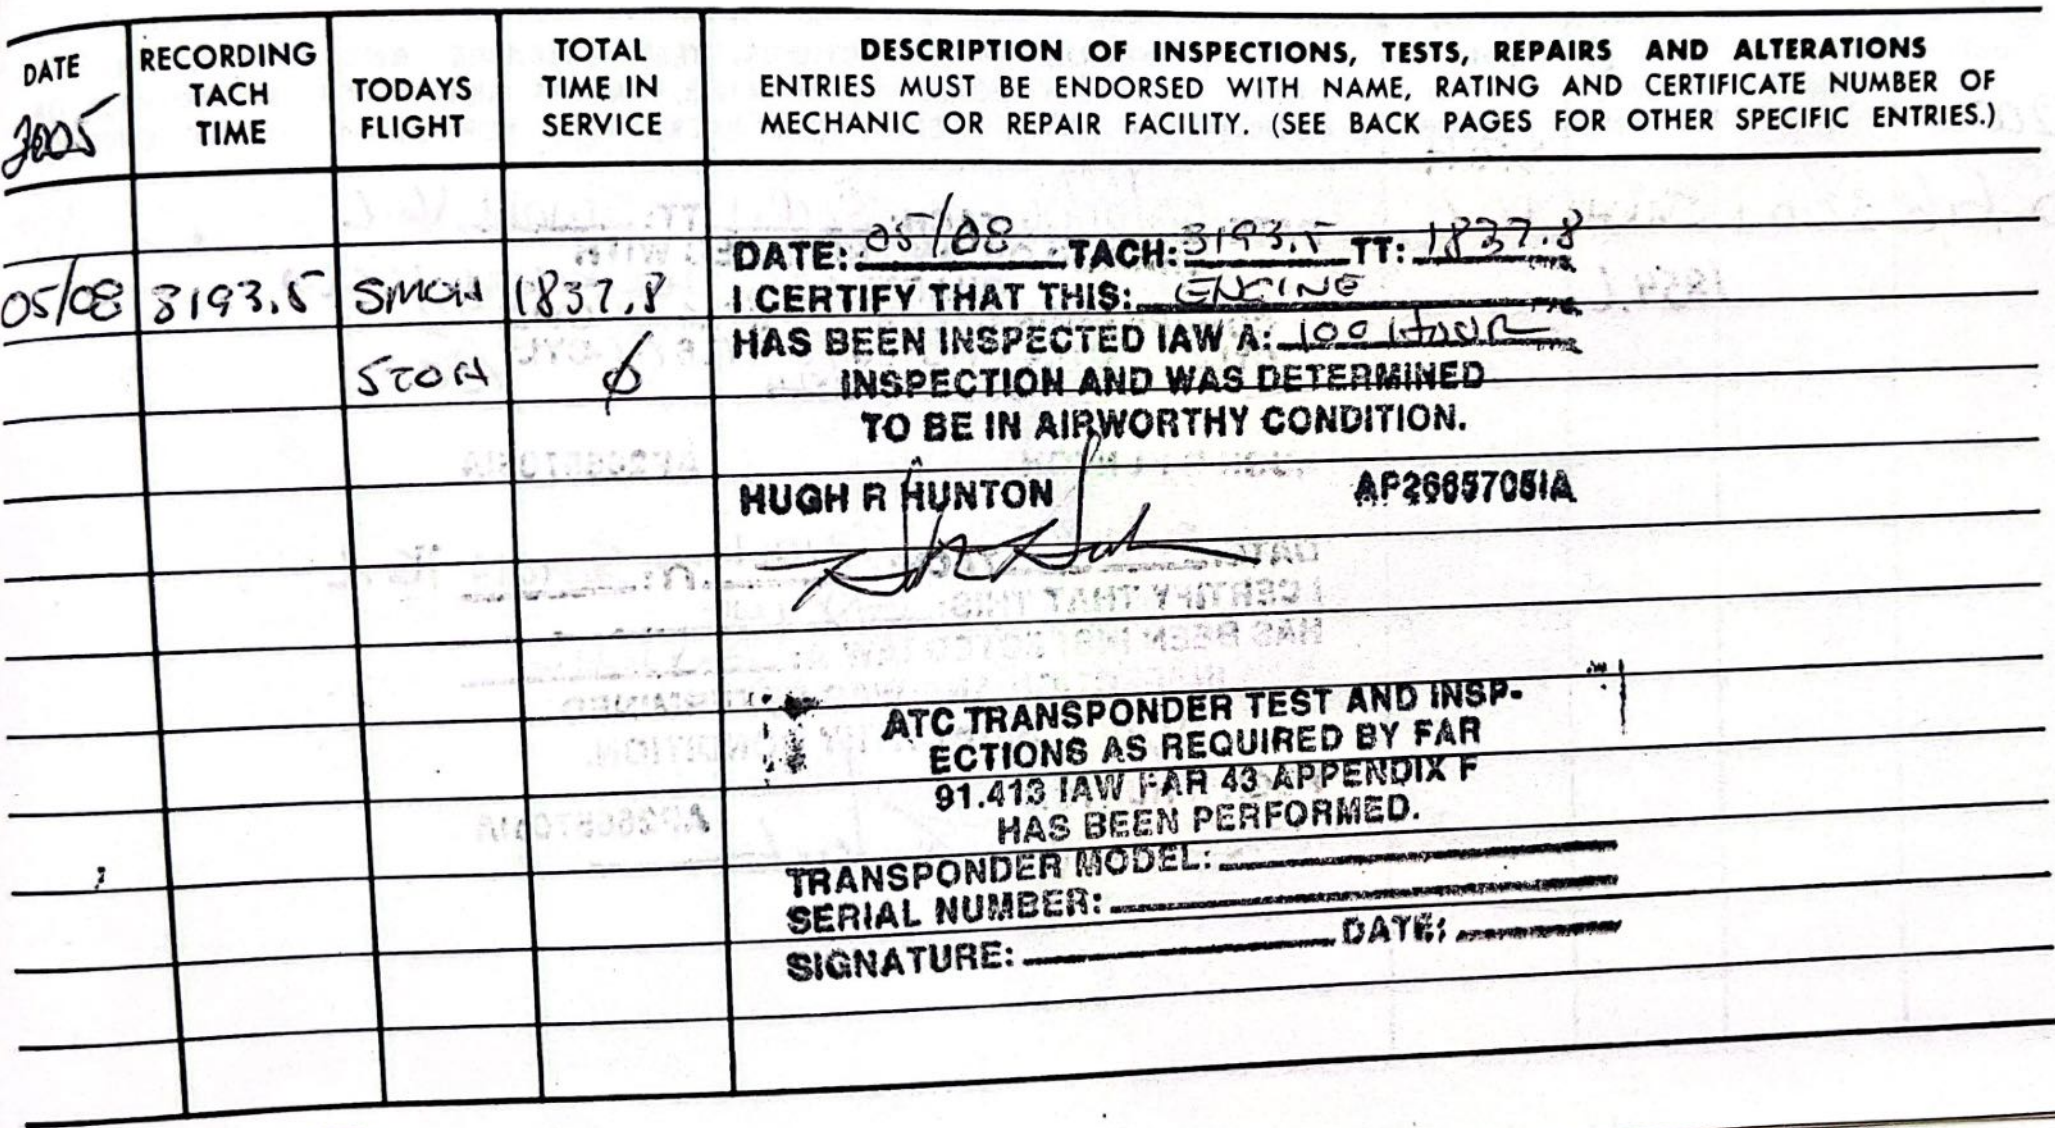 DATE
2005
RECORDING
TACH
TIME
TODAYS
FLIGHT
TOTAL
TIME IN
SERVICE
DESCRIPTION OF INSPECTIONS, TESTS, REPAIRS AND ALTERATIONS
ENTRIES MUST BE ENDORSED WITH NAME, RATING AND CERTIFICATE NUMBER OF
MECHANIC OR REPAIR FACILITY. (SEE BACK PAGES FOR OTHER SPECIFIC ENTRIES.)
05/08 3193.5 SMOH 1837.8
STOH ϕ
DATE: 05/08 TACH: 3193.5 TT: 1837.8
I CERTIFY THAT THIS: ENGINE
HAS BEEN INSPECTED IAW A: 100 HOUR
INSPECTION AND WAS DETERMINED
TO BE IN AIRWORTHY CONDITION.
HUGH R HUNTON AP2665705IA
ATC TRANSPONDER TEST AND INSP-
ECTIONS AS REQUIRED BY FAR
91.413 IAW FAR 43 APPENDIX F
HAS BEEN PERFORMED.
TRANSPONDER MODEL:
SERIAL NUMBER:
SIGNATURE: DATE: